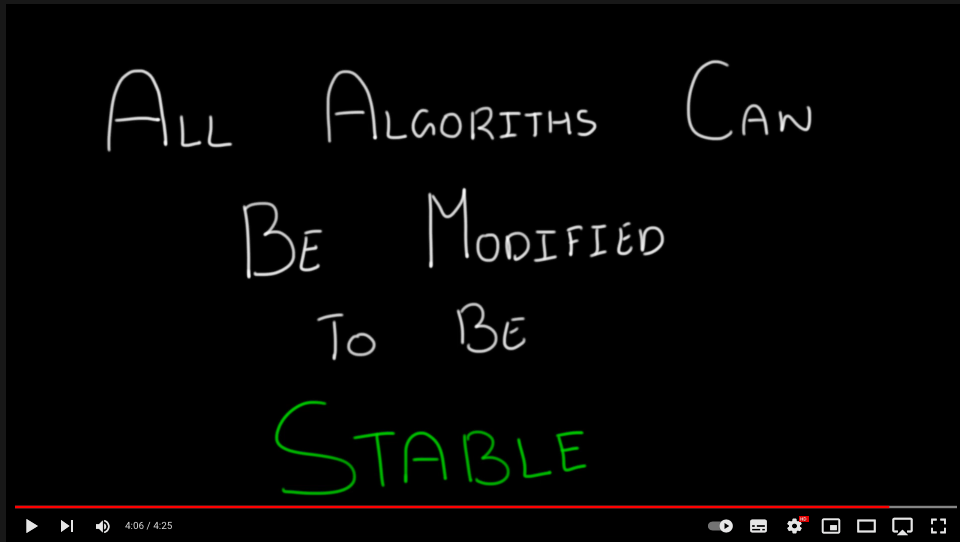 ALL ALGORITHS CAN
BE MODIFIED
TO BE
STABLE
4:06 / 4:25
HD